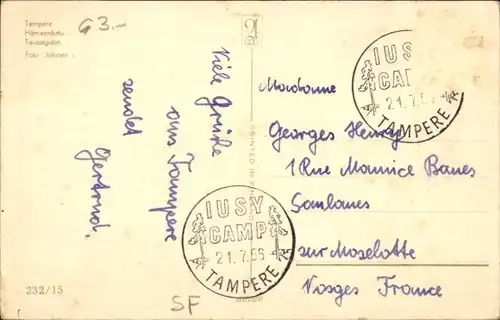 Tampere
Hämeenkatu
Tavastgatan
Foto Jokinen
G3.-
Viele Grüße
aus Tampere
sendet
Gertrud.
PRINTED IN FINLAND
IUSY
CAMP
21.7.56
TAMPERE
IUSY
CAMP
21.7.56
TAMPERE
Madame
Georges Henry
1 Rue Maurice Baues
Saulaues
sur Moselotte
Vosges France
232/15
SF